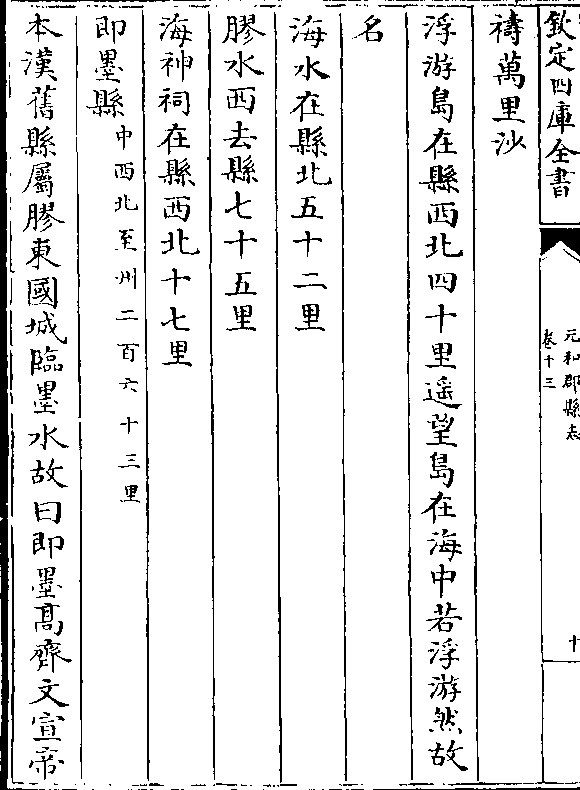 欽定四庫全書
元和郡縣志
卷十三
十
禱萬里沙
浮游島在縣西北四十里遥望島在海中若浮游然故
名
海水在縣北五十二里
膠水西去縣七十五里
海神祠在縣西北十七里
即墨縣中西北至州二百六十三里
本漢舊縣屬膠東國城臨墨水故曰即墨髙齊文宣帝